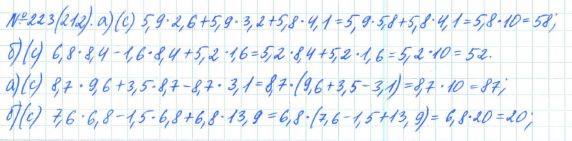 №223(212). а)(с) 5,9·2,6+5,9·3,2+5,8·4,1=5,9·5,8+5,8·4,1=5,8·10=58;
б)(с) 6,8·8,4-1,6·8,4+5,2·1,6=5,2·8,4+5,2·1,6=5,2·10=52.
а)(с) 8,7·9,6+3,5·8,7-8,7·3,1=8,7·(9,6+3,5-3,1)=8,7·10=87;
б)(с) 7,6·6,8-1,5·6,8+6,8·13,9=6,8·(7,6-1,5+13,9)=6,8·20=20;